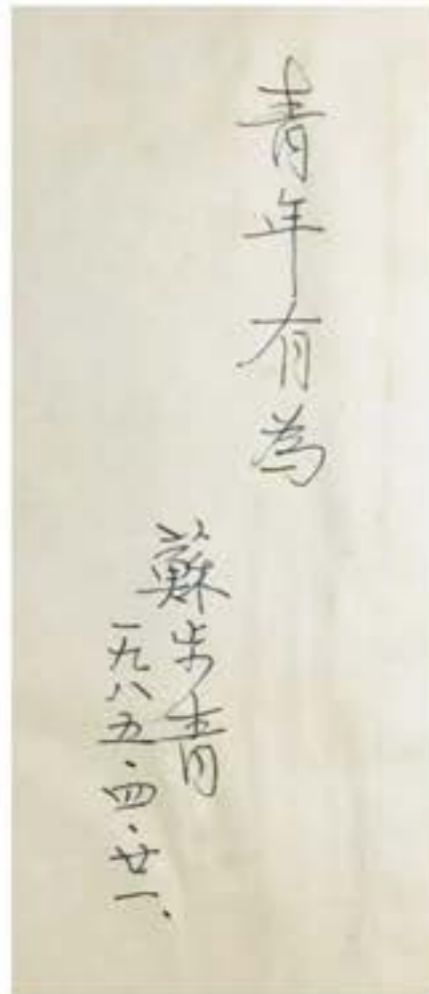 青年有為
蘇步青
一九八五.四.廿一.